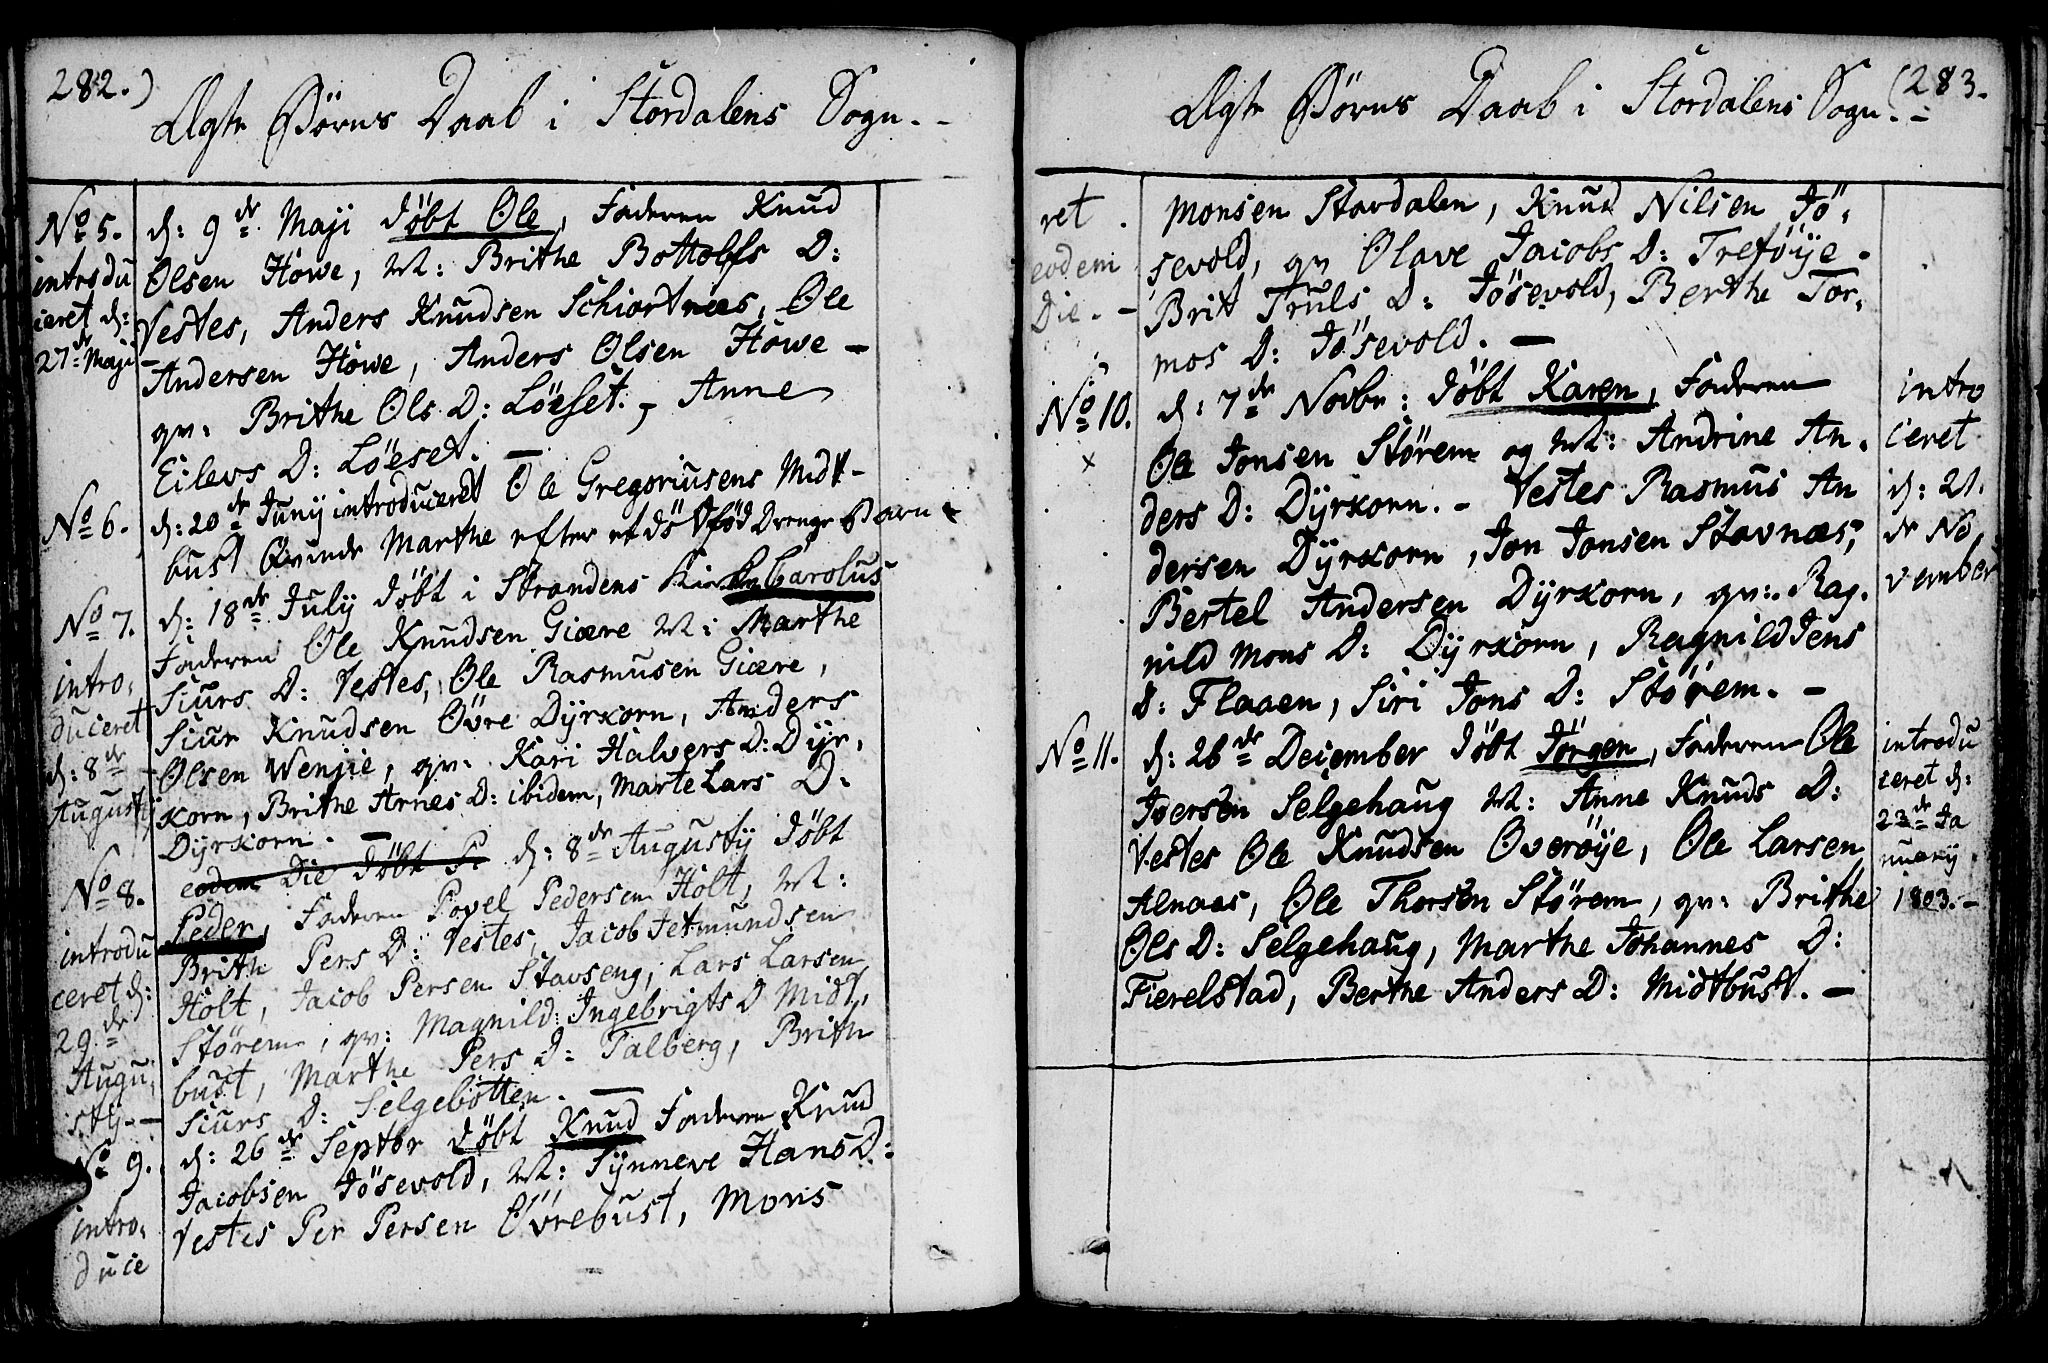 282.)
Ægte Børns Daab i Stordalens Sogn. -
No 5.
introdu
ceret d:
27de Maji
d: 9de Maji døbt Ole, Faderen Knud
Olsen Howe, M: Brithe Bottolfs D:
Testes, Anders Knudsen Schiortnæs, Ole
Andersen Howe, Anders Olsen Howe -
qv: Brithe Ols D: Løeset. - Anne
Eilevs D: Løeset. -
No 6.
d: 20de Junij introduceret Ole Gregoriusens Midt-
bust Qvinde Marthe efter et dødfød Drenge Barn -
No 7.
intro,
duceret
d: 8de
Augustij
d: 18de July døbt i Strandens Kirke Carolus
Faderen Ole Knudsen Giære M: Marthe
Siurs D: Testes, Ole Rasmusen Giære,
Siur Knudsen Øvre Dyrkorn, Anders
Olsen Wenjie, qv: Kari Halvers D: Dyr,
korn, Brithe Arnes D: ibidem, Marte Lars D:
Dyrkorn. -
No 8.
introdu
ceret d:
29de
Augu,
stij. -
eodem Die døbt P. d: 8de Augustij døbt
Peder, Faderen Povel Pedersen Holt, M:
Brith Pers D: Testes, Jacob Jetmundsen
Holt, Jacob Persen Stavseng, Lars Larsen
Størem, qv: Magnild Ingebrigts D Midt,
bust, Marthe Pers D: Talberg, Brith
Siurs D: Selgebotten. -
No 9.
intro,
duce
d: 26de Septbr døbt Knud Faderen Knud
Jacobsen Jøsevold, M: Synneve Hans D:
Testes Per Persen Øvrebust, Mons
(283.
Ægte Børns Daab i Stordalens Sogn. -
ret
eodem
Die. -
Monsen Stordalen, Knud Nilsen Jø,
sevold, qv Olave Jacobs D: Treføye.
Brit Truls D: Jøsevold, Berthe Tor,
mos D: Jøsevold. -
No 10.
x
d: 7de Novbr: døbt Karen, Faderen
Ole Jonsen Størem og M: Andrine An,
ders D: Dyrkorn. - Testes Rasmus An
dersen Dyrkorn, Jon Jonsen Stavnæs,
Bertel Andersen Dyrkorn, qv: Rag,
nild Mons D: Dyrkorn, Ragnild Jens
D: Flaaen, Siri Jons D: Størem. -
intro
ceret
d: 21.
de No,
vember
No 11.
d: 26de December døbt Jørgen, Faderen Ole
Iversen Selgehaug M: Anne Knuds D:
Testes Ole Knudsen Overøye, Ole Larsen
Alnæs, Ole Thorsen Størem, qv: Brithe
Ols D: Selgehaug, Marthe Johannes D:
Fierelstad, Berthe Anders D: Midtbust. -
introdu
ceret d:
23de Ja
nuarij
1803. -